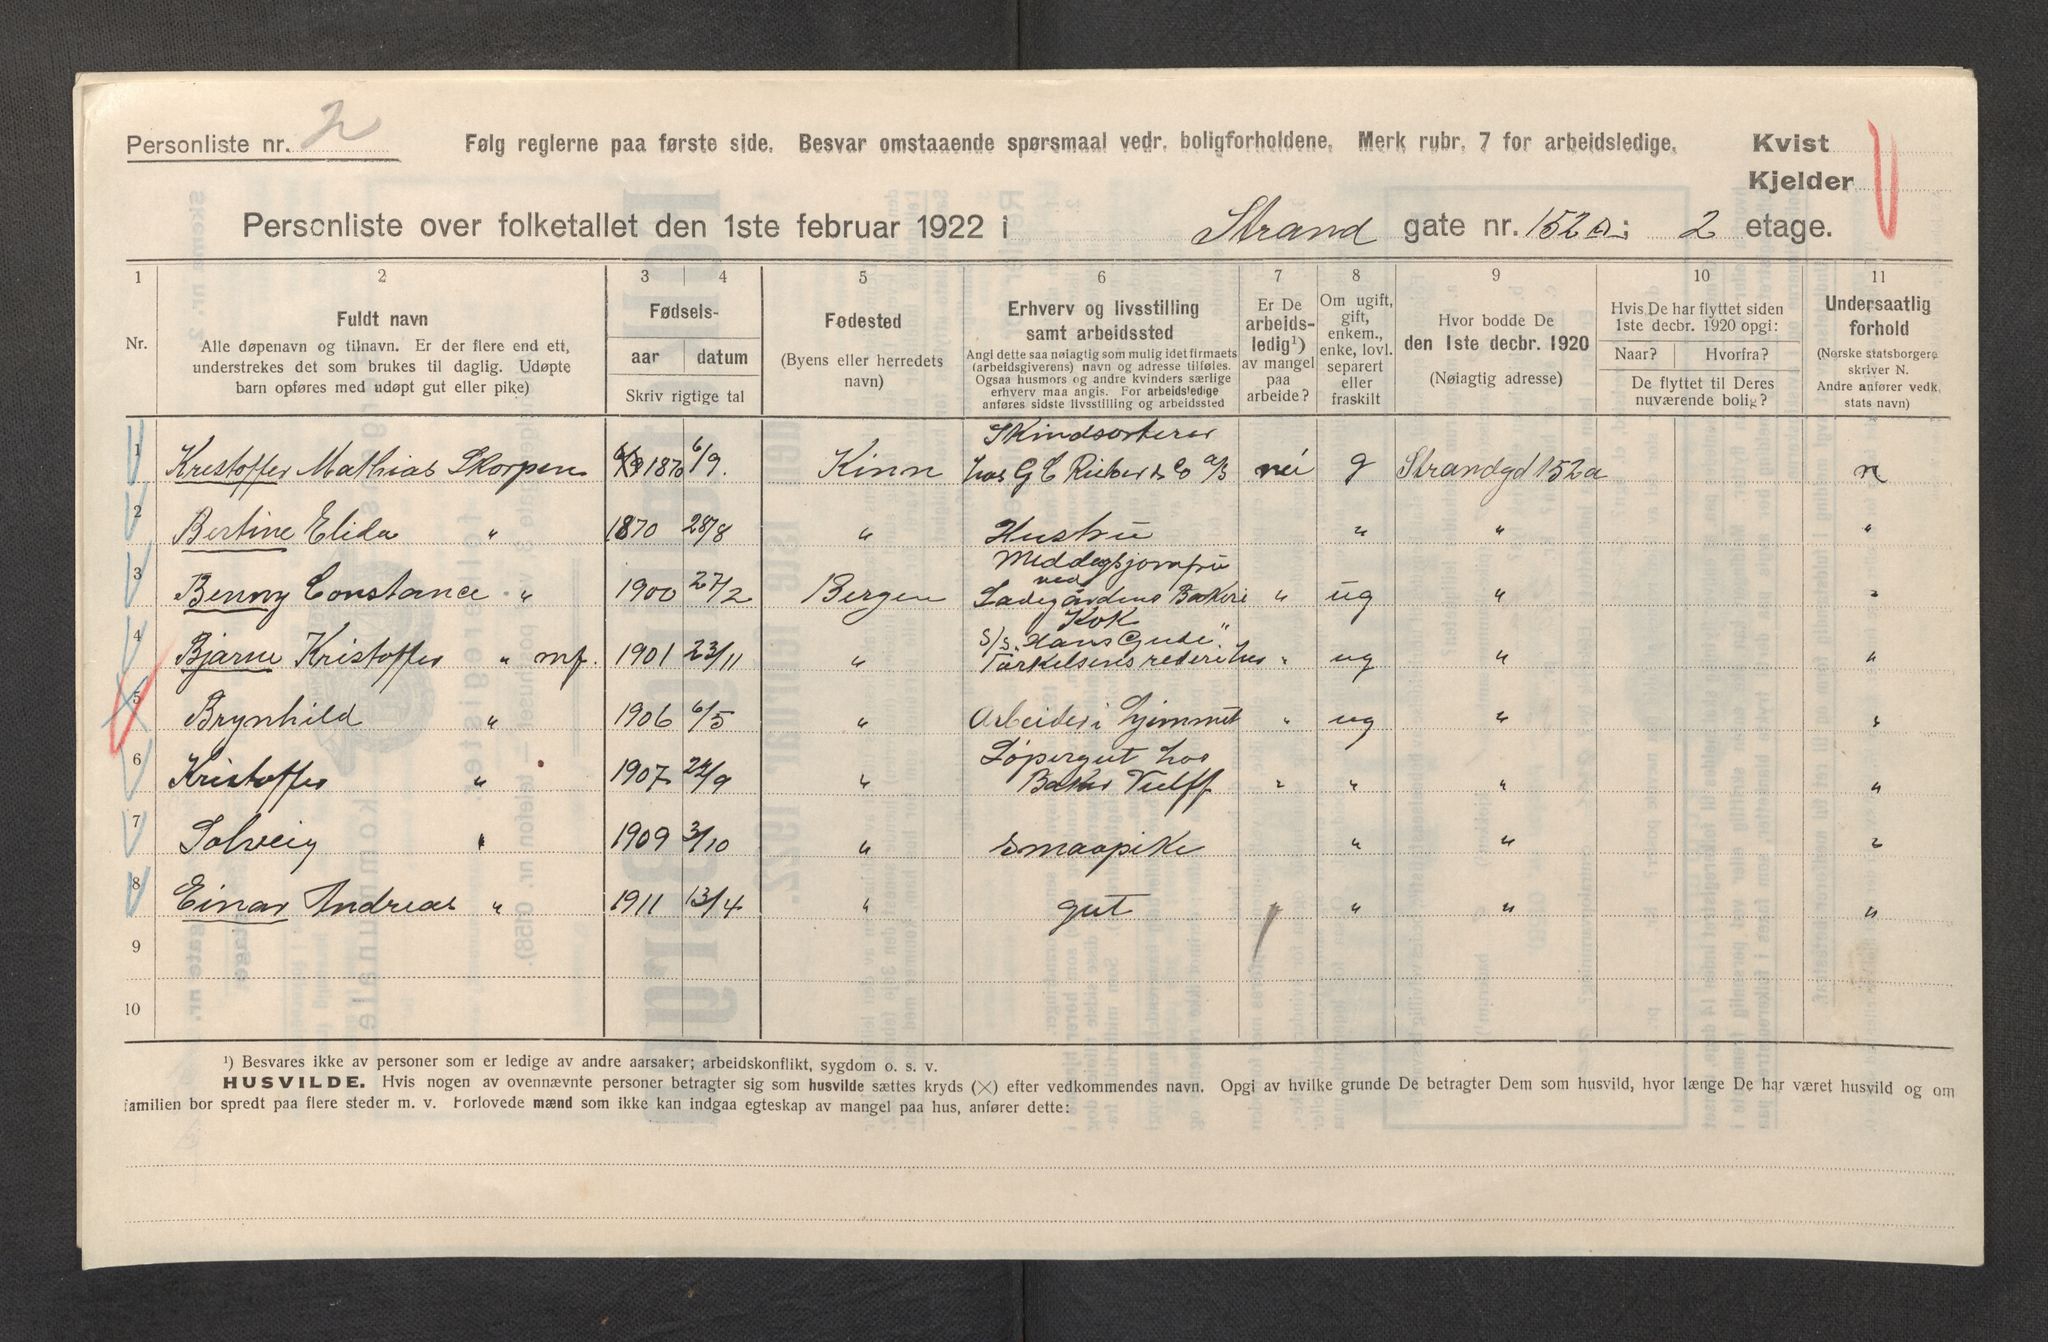 Personliste nr. 2 Følg reglerne paa første side. Besvar omstaaende spørsmaal vedr. boligforholdene. Merk rubr. 7 for arbeidsledige. Kvist
Kjelder
Personliste over folketallet den 1ste februar 1922 i Strand gate nr. 152a; 2 etage.
1 2 3 4 5 6 7 8 9 10 11
Nr.
Fuldt navn
Alle døpenavn og tilnavn. Er der flere end ett,
understrekes det som brukes til daglig. Udøpte
barn opføres med udøpt gut eller pike)
Fødsels-
aar datum
Skriv rigtige tal
Fødested
(Byens eller herredets
navn)
Erhverv og livsstilling
samt arbeidssted
Angi dette saa nøiagtig som mulig idet firmaets
(arbeidsgiverens) navn og adresse tilføles.
Ogsaa husmors og andre kvinders særlige
erhverv maa angis. For arbeidsledige
anføres sidste livsstilling og arbeidssted
Er De
arbeids-
ledig¹)
av mangel
paa
arbeide?
Om ugift,
gift,
enkem.,
enke, lovl.
separert
eller
fraskilt
Hvor bodde De
den 1ste decbr. 1920
(Nøiagtig adresse)
Hvis De har flyttet siden
1ste decbr. 1920 opgi:
Naar? Hvorfra?
De flyttet til Deres
nuværende bolig?
Undersaatlig
forhold
(Norske statsborgere
skriver N.
Andre anfører vedk.
stats navn)
1 Kristoffer Mathias Skorpen 1870 6/9. Kinn Skindsorterer
hos G C Rieber & Co a/s nei g Strandgd 152a n
2 Bertine Elida " 1870 28/8 " Hustru " " "
3 Benny Constance " 1900 27/2 Bergen Middagsjomfru
ved
Ladegårdens Bakeri " ug " "
4 Bjarne Kristoffer " mf. 1901 23/11 " Kok
S/S. "Hans Gude"
Torkelsens rederi hus " ug " "
5 Brynhild " 1906 6/5 " Arbeider i hjemmet " ug " "
6 Kristoffer " 1907 24/9 " Løpergut hos
Baker Tulff " " " "
7 Solveig " 1909 3/10 " smaapike " " "
8 Einar Andreas " 1911 13/4 " gut " " "
9
10
¹) Besvares ikke av personer som er ledige av andre aarsaker; arbeidskonflikt, sygdom o. s. v.
HUSVILDE. Hvis nogen av ovennævnte personer betragter sig som husvilde sættes kryds (×) efter vedkommendes navn. Opgi av hvilke grunde De betragter Dem som husvild, hvor længe De har været husvild og om
familien bor spredt paa flere steder m. v. Forlovede mænd som ikke kan indgaa egteskap av mangel paa hus, anfører dette: